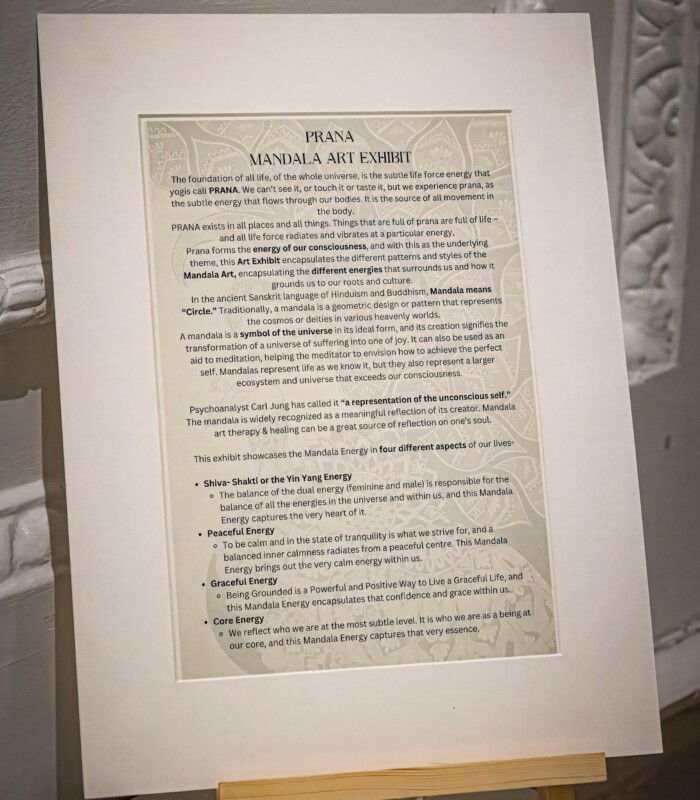 PRANA
MANDALA ART EXHIBIT
The foundation of all life, of the whole universe, is the subtle life force energy that
yogis call PRANA. We can't see it, or touch it or taste it, but we experience prana, as
the subtle energy that flows through our bodies. It is the source of all movement in
the body.
PRANA exists in all places and all things. Things that are full of prana are full of life –
and all life force radiates and vibrates at a particular energy.
Prana forms the energy of our consciousness, and with this as the underlying
theme, this Art Exhibit encapsulates the different patterns and styles of the
Mandala Art, encapsulating the different energies that surrounds us and how it
grounds us to our roots and culture.
In the ancient Sanskrit language of Hinduism and Buddhism, Mandala means
"Circle." Traditionally, a mandala is a geometric design or pattern that represents
the cosmos or deities in various heavenly worlds.
A mandala is a symbol of the universe in its ideal form, and its creation signifies the
transformation of a universe of suffering into one of joy. It can also be used as an
aid to meditation, helping the meditator to envision how to achieve the perfect
self. Mandalas represent life as we know it, but they also represent a larger
ecosystem and universe that exceeds our consciousness.
Psychoanalyst Carl Jung has called it "a representation of the unconscious self."
The mandala is widely recognized as a meaningful reflection of its creator. Mandala
art therapy & healing can be a great source of reflection on one's soul.
This exhibit showcases the Mandala Energy in four different aspects of our lives-
• Shiva- Shakti or the Yin Yang Energy
◦ The balance of the dual energy (feminine and male) is responsible for the
balance of all the energies in the universe and within us, and this Mandala
Energy captures the very heart of it.
• Peaceful Energy
◦ To be calm and in the state of tranquility is what we strive for, and a
balanced inner calmness radiates from a peaceful centre. This Mandala
Energy brings out the very calm energy within us.
• Graceful Energy
◦ Being Grounded is a Powerful and Positive Way to Live a Graceful Life, and
this Mandala Energy encapsulates that confidence and grace within us.
• Core Energy
◦ We reflect who we are at the most subtle level. It is who we are as a being at
our core, and this Mandala Energy captures that very essence.